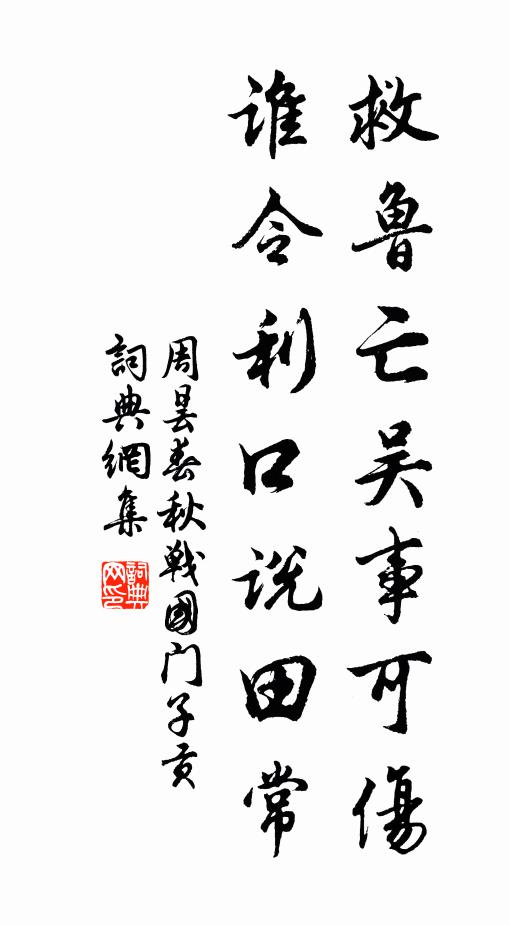 救魯亡吴事可傷
谁令利口说田常
周昙春秋戰國门子贡
詞典網集
詞典网印